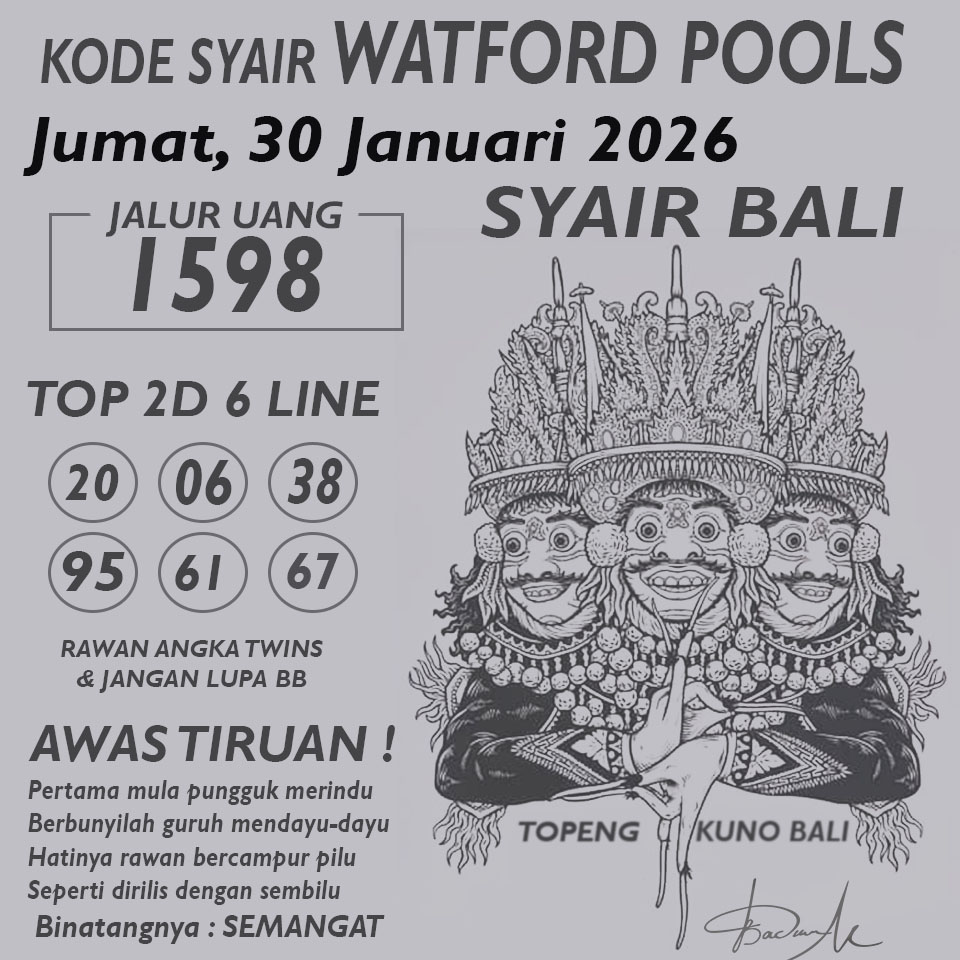 KODE SYAIR WATFORD POOLS
Jumat, 30 Januari 2026
SYAIR BALI
JALUR UANG
1598
TOP 2D 6 LINE
20 06 38
95 61 67
RAWAN ANGKA TWINS
& JANGAN LUPA BB
AWAS TIRUAN !
Pertama mula pungguk merindu
Berbunyilah guruh mendayu-dayu
Hatinya rawan bercampur pilu
Seperti dirilis dengan sembilu
Binatangnya : SEMANGAT
TOPENG KUNO BALI